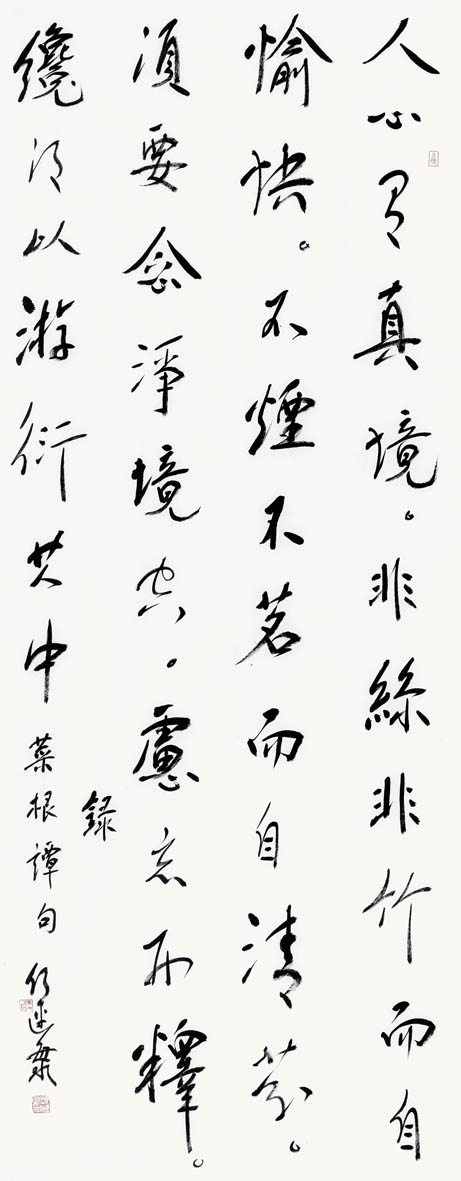 人心有真境。非絲非竹而自
愉快。不煙不茗而自清芬。
須要念淨境空。慮忘形釋。
纔得以游衍其中
錄
菜根譚句